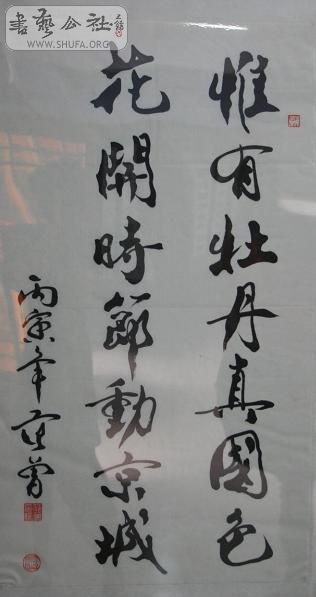 惟有牡丹真國色
花開時節動京城
丙寅年 范曾
書藝公社
WWW.SHUFA.ORG